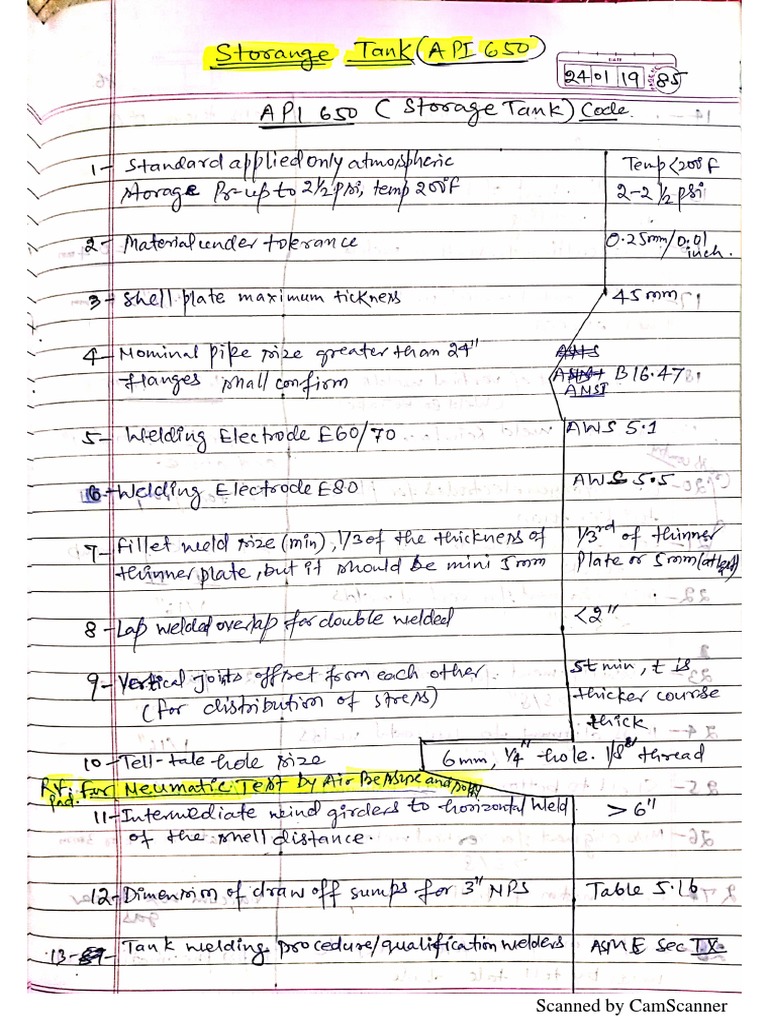 Storange Tank (API 650)
DATE
24 01 19 85
API 650 (Storage Tank) Code.
1- Standard applied only atmospheric Temp<200°F
storage Pr-up to 2 1/2 psi, temp 200°F 2-2 1/2 psi
2- Material under tolerance 0.25mm/0.01
inch.
3- Shell plate maximum tickness 45mm
4- Nominal pipe size greater than 24"
flanges shall confirm B16.47
ANSI
5- Welding Electrode E60/70 AWS 5.1
6- Welding Electrode E80 AWS 5.5
7- Fillet weld size (min), 1/3 of the thickness of 1/3rd of thinner
thinner plate, but it should be mini 5mm plate or 5mm(atleast)
8- Lap welded overlap for double welded <2"
9- Vertical joints offset from each other 5t min, t is
(for distribution of stress) thicker course
thick
10- Tell-tale hole size 6mm, 1/4" hole. 1/8" thread
For Neumatic Test by Air Pressure and
Pad.
11- Intermediate wind girders to horizontal weld > 6"
of the shell distance.
12- Dimension of draw off sumps for 3" NPS Table 5.16
13- Tank welding procedure/qualification welders ASME Sec IX.
Scanned by CamScanner